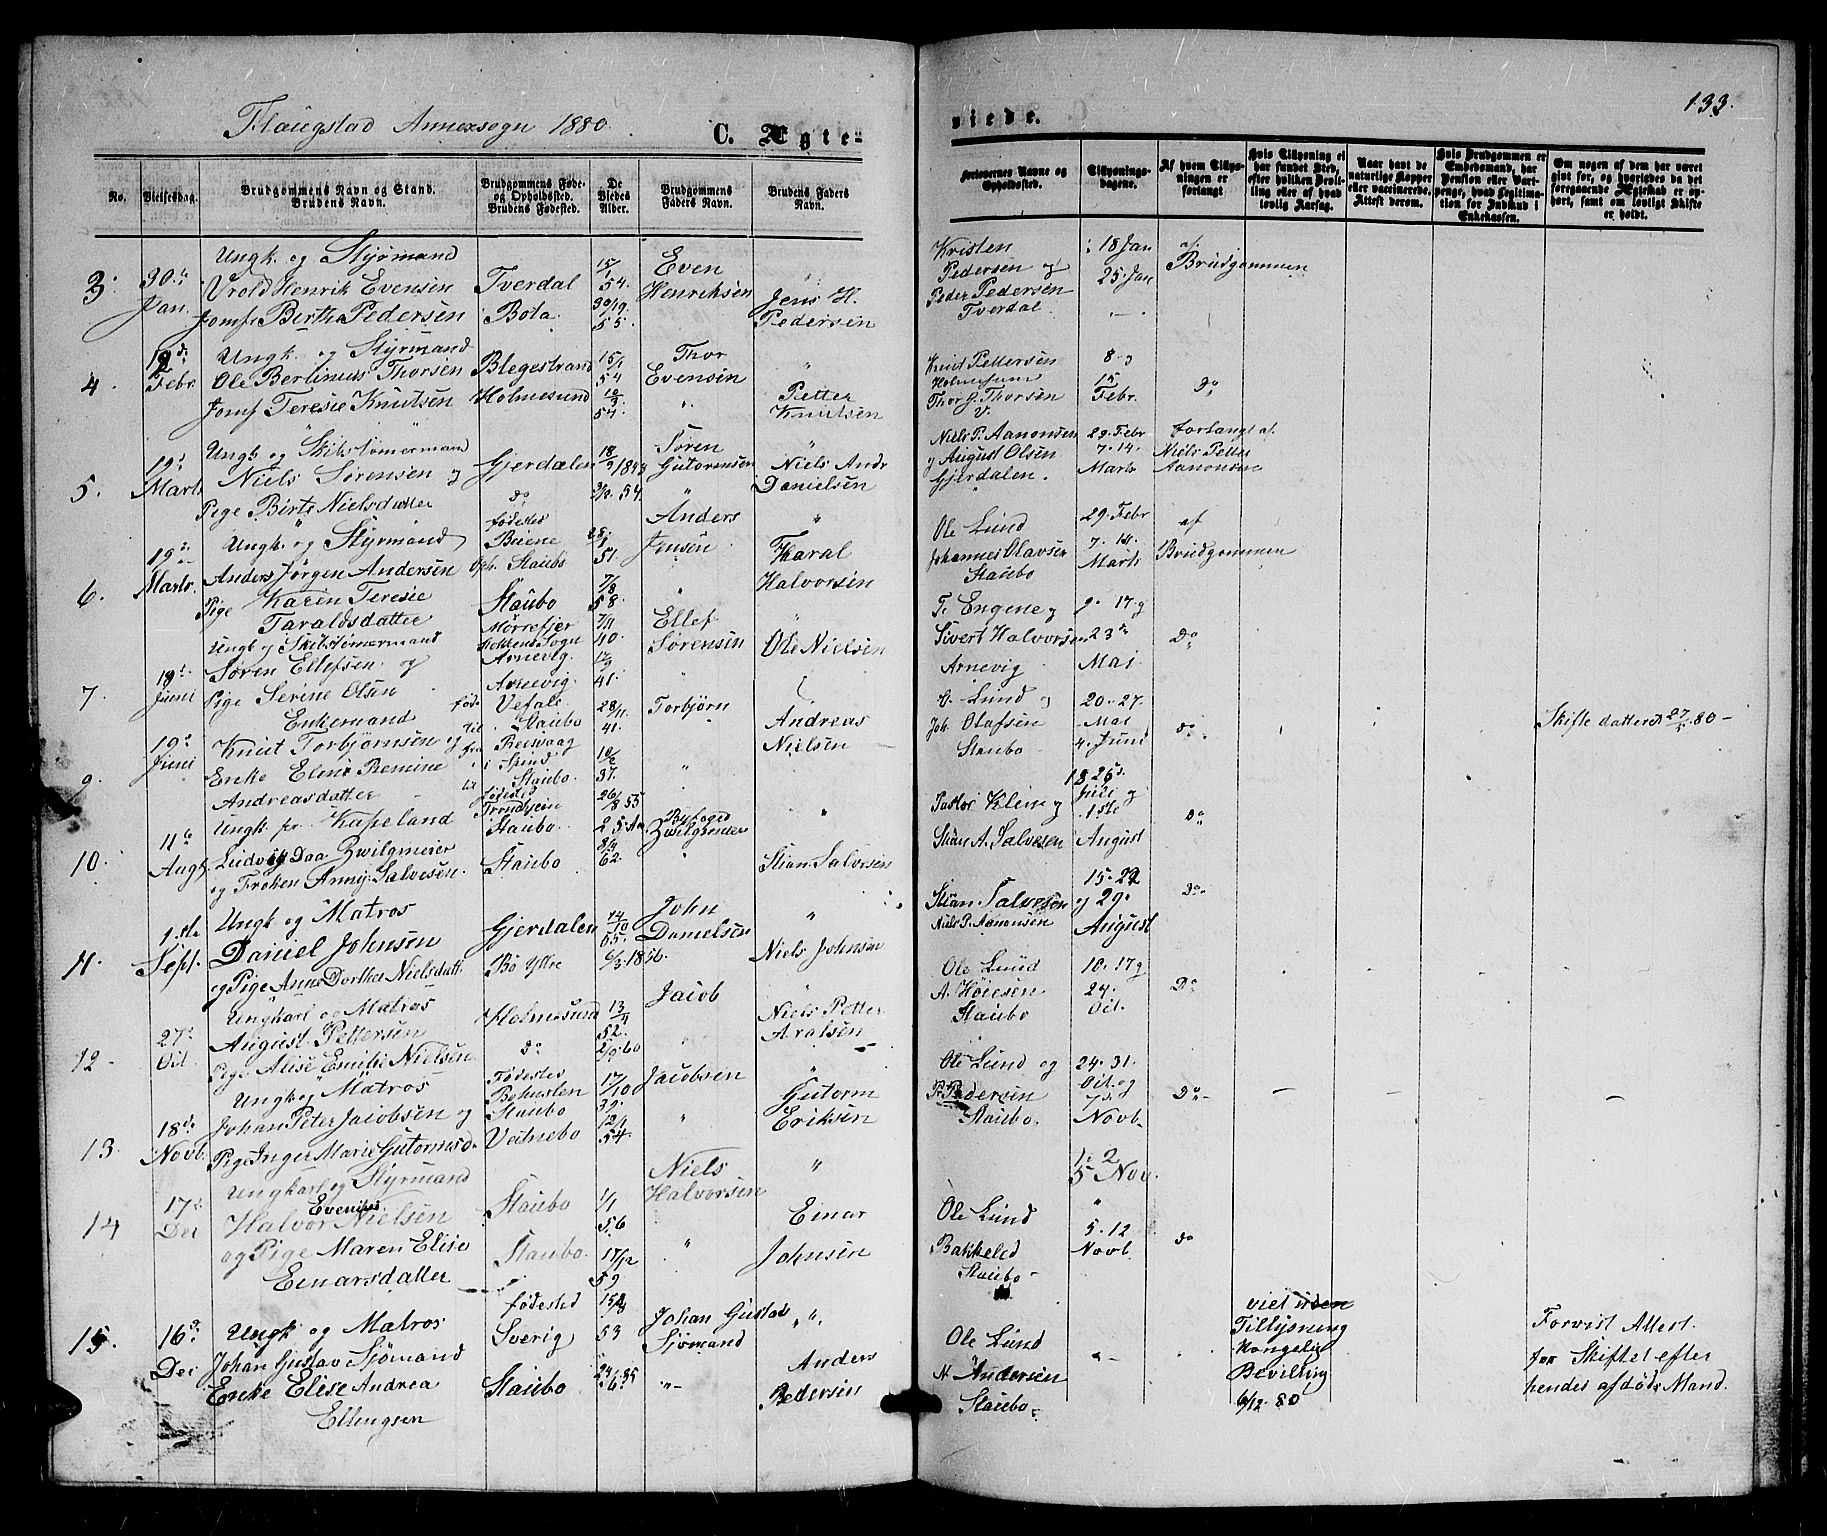 Flaugstad Annexsogn 1880.
C. Ægte-
No.
Vielsesdag.
Brudgommens Navn og Stand.
Brudens Navn.
Brudgommens Føde-
og Opholdssted.
Brudens Fødested.
De
Viedes
Alder.
Brudgommens
Faders Navn.
Brudens Faders
Navn.
3.
30.
Jan.
Ungk. og Styrmand
Vrold Henrik Evensen
Jomf. Bertha Pedersen
Tverdal
Bota.
15/1
54.
30/19
55.
Even
Henriksen
Jens H.
Pedersen
4.
19 d.
Febr.
Ungk. og Styrmand
Ole Berlinius Thorsen
Jomf. Teresie Knutsen
Blegestrand
Holmesund
15/1
54
12/3
54.
Thor
Evensen
Petter
Knutsen
5.
19 d.
Marts
Ungk. og Skibstømermand
Niels Sørensen og
Pige Birte Nielsdatter
Gjerdalen
do
18/9 1848
3/2 54.
Søren
Gutormsen
Niels Andr
Danielsen
6.
19 d.
Marts.
Ungk. og Styrmand
Anders Jørgen Andersen
Pige Karen Teresie
Taraldsdatter
fødested
Buene
Oph. Staubo
Staubo
28/1
51.
7/8
58.
Anders
Jensen
Tharal
Halvorsen
7.
19 d.
Juni
Ungk og Skibstømermand
Søren Ellefsen og
Pige Serine Olsen
Mørrefjer
Holtens Sogn
Arnevig.
Arnevig.
7/11
40.
17/9
41.
Ellef
Sørensen
Ole Nielsen
9.
19 d.
Juni
Enkemand
Knut Torbjørnsen og
Enke Eline Remine
Andreasdatter
Staubo
i Spind
Staubo.
28/11
41.
10/2
37.
Torbjørn
Andreas
Nielsen
10.
11 d.
Augt.
Ungk. Kapeland
Ludvig Daa Zwilgmeier
og Frøken Anny Salvesen.
fødested
Trondhjem
Staubo.
Staubo
26/8 53
62.
Byfoged
Zwilgmeier
Stian Salvesen
11.
1.ste
Sept.
Ungk og Matros
Daniel Johnsen
og Pige Anne Dorthea Nielsdatt.
Gjerdalen
Bo Ytre
14/10
55.
6/3 1856.
John
Danielsen
Niels Johnsen
12.
27 d.
Oct.
Ungkarl og Matros
August Pettersen
Pige Alise Emilie Nielsen
Holmesund
do
13/4
52.
2/9 60
Jacob
Niels Petter
Aralsen
13.
18 d.
Novb.
Ungk og Matros
Johan Peter Jacobsen og
Pige Inger Marie Gutormsd.
Fødested
Bohuslen
Staubo
Vatnebo
17/10
39.
12/1
54.
Jacobsen
Gutorm
Eriksen
14
17 d.
Dec
Ungkarl og Styrmand
Evenius
Halvor Nielsen
og Pige Maren Elise
Einarsdatter
Staubo
Staubo.
1/1
56
17/12
59
Niels
Halvorsen
Einar
Johnsen
15.
16 d.
Dec
Ungk og Matros
Johan Gustav Sjømand
Enke Elise Andrea
Ellingsen
fødested
Sverig
Staubo
53
24/6 35
Johan Gustav
Sjømand
Anders
Pedersen
133.
viede.
Forlovernes Navne og
Opholdssted.
Tillysnings-
dagene.
Af hvem Tillys-
ningen er
forlangt
Hvis Tillysning ei
har fundet Sted,
efter hvilken Bevil-
ling eller af hvad
lovlig Aarsag.
Naar havt de
naturlige Kopper
eller vaccinerede.
Attest derom.
Hvis Brudgommen er
Embedsmand, har
Pension eller Vart-
penge, hvad Legitima-
tion for Indskud i
Enkekassen.
Om nogen af dem har været
gift før, og hvorledes da det
foregaaende Ægteskab er op-
hørt, samt om lovligt Skifte
er holdt.
Kristen
Pedersen og
Peder Pedersen
Tverdal.
18 Jan
25. Jan
af
Brudgommen
Knud Pettersen
Holmesund
Thor G. Thorsen
8. og
15
Febr.
do
Niels P. Aanonsen
og August Olsen
Gjerdalen.
29. Febr
7. 14.
Marts
forlangt af
Niels Petter
Aanonsen
Ole Lund
Johannes Olavsen
Staubo
29. Febr
7. 14.
Marts
af
Brudgommen
T. Engene og
Sivert Halvorsen
Arnevig
9. 17 og
23 d.
Mai
do
O. Lund og
Joh. Olafsen
Staubo.
20. 27.
Mai
4. Juni
do.
Skifte datteret 27/5 80 –
Pastor Klem og
Stian A. Salvesen
18 25 d.
Juli og
1ste
August
do
Stian Salvesen
Niels P. Aanonsen
15. 22
og 29.
August
Do.
Ole Lund
A. Høiesen
Staubo
10. 17 og
24.
Oct.
Do
Ole Lund og
P. Pedersen
Staubo.
24. 31.
Oct. og
7 d.
Novb.
Do –
1. 2
5 Nov.
Ole Lund
Bakkeled
Staubo
5. 12
Novb.
do
Ole Lund
N Andersen
Staubo
viet uden
Tillysning
Kongelig
Bevilling
6/12 80
Forvist Attest
for Skiftet efter
hendes afdøde Mand.